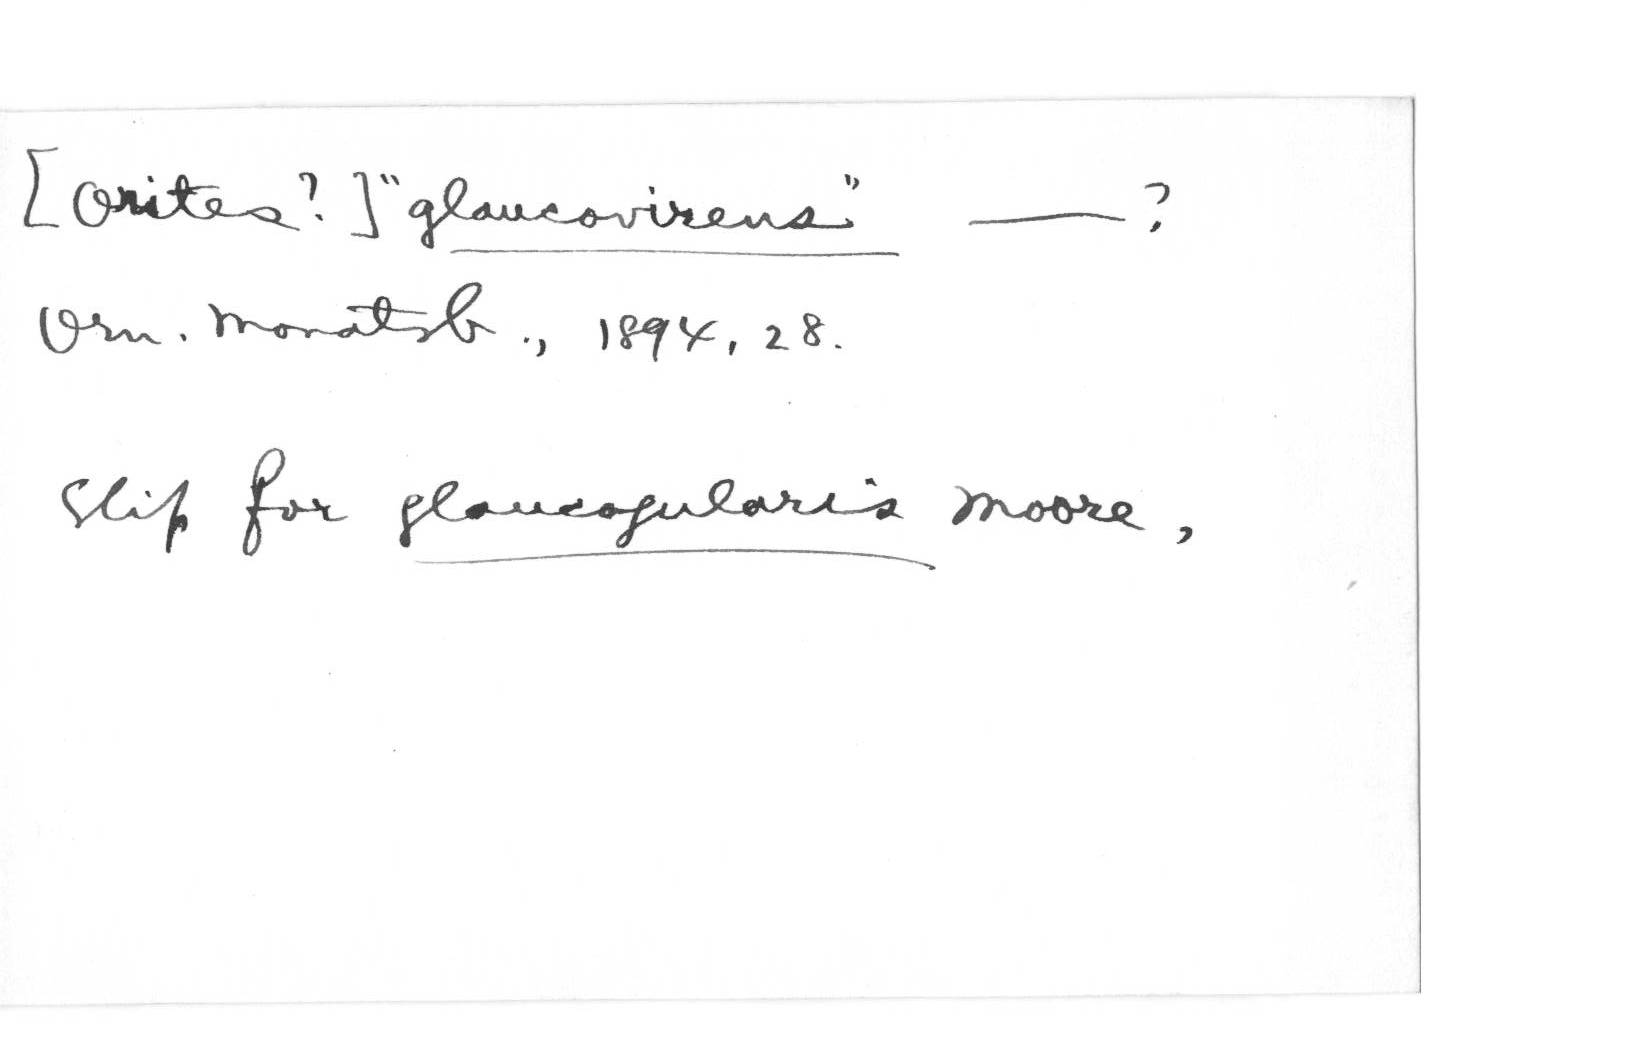 [Orites?] "glaucovirens" ——?
Orn. Monatsb., 1894, 28.
Slip for glaucogularis Moore,